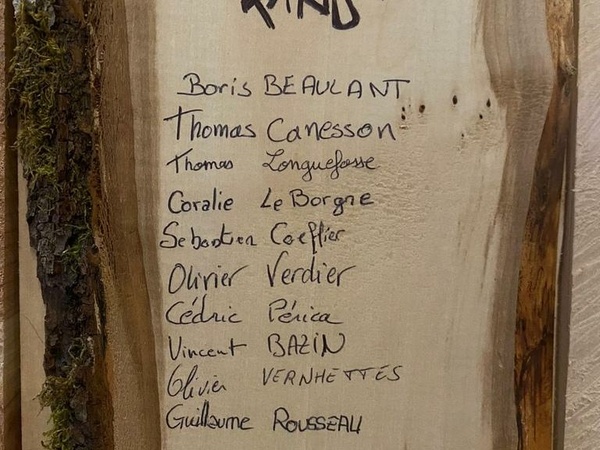 RAND
Boris BEAULANT
Thomas Canesson
Thomas Longuefosse
Coralie Le Borgne
Sebastien Coeffier
Olivier Verdier
Cédric Périca
Vincent BAZIN
Olivier VERNHETTES
Guillaume ROUSSEAU